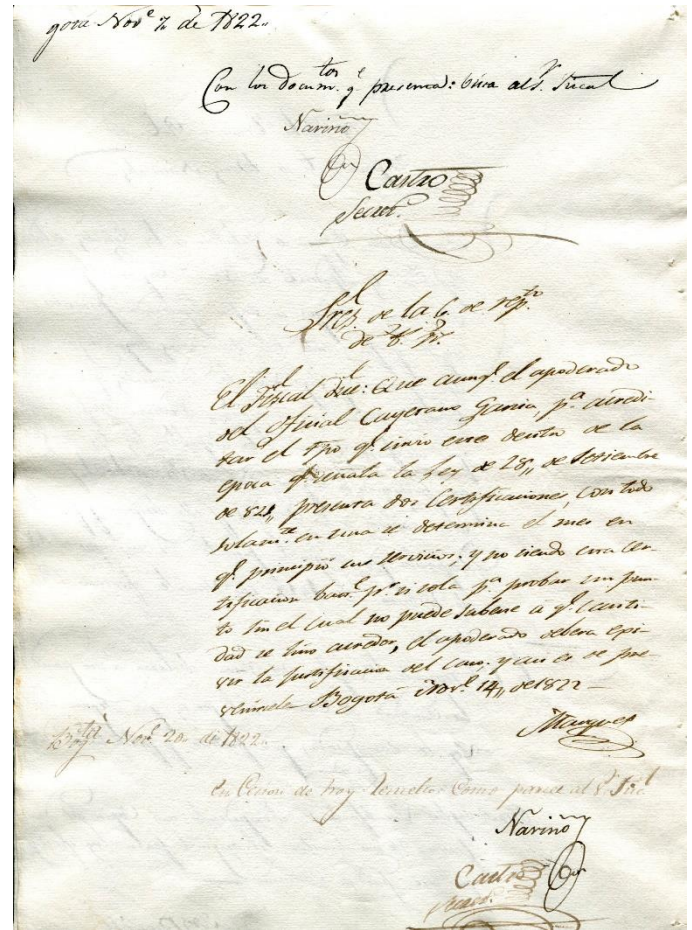 gotá Nov.e 7„ de 1822„
Con los docum.tos q.e presenta: vista al S.r Fiscal
Nariño
Castro
Secret.o
Sres. de la C. de rep.to
de B. N.
El Fiscal dice: Que aunq.e el apoderado
del Oficial Cayetano Garcia, p.a acredi
tar el tpo q.e sirvio dentro de la
epoca q.e señala la Ley de 28„ de Setiembre
de 821„ presenta dos Certificaciones, con todo
solam.te en una se determina el mes en
q.e principió sus servicios; y no siendo esta cer-
tificacion bast.e p.r si sola p.a probar un pun-
to sin el cual no puede saberse á q.e canti-
dad se hizo acredor, el apoderado debera exi-
vir la justificacion del caso, y asi es de pre-
venirsele Bogotá Nov.e 14„ de 1822—
Marquez
Bogotá Nov.e 20„ de 1822„
En Cesion de hoy. Resuelto: Como parece al S.r Fiscal
Nariño
Castro
Secret.o